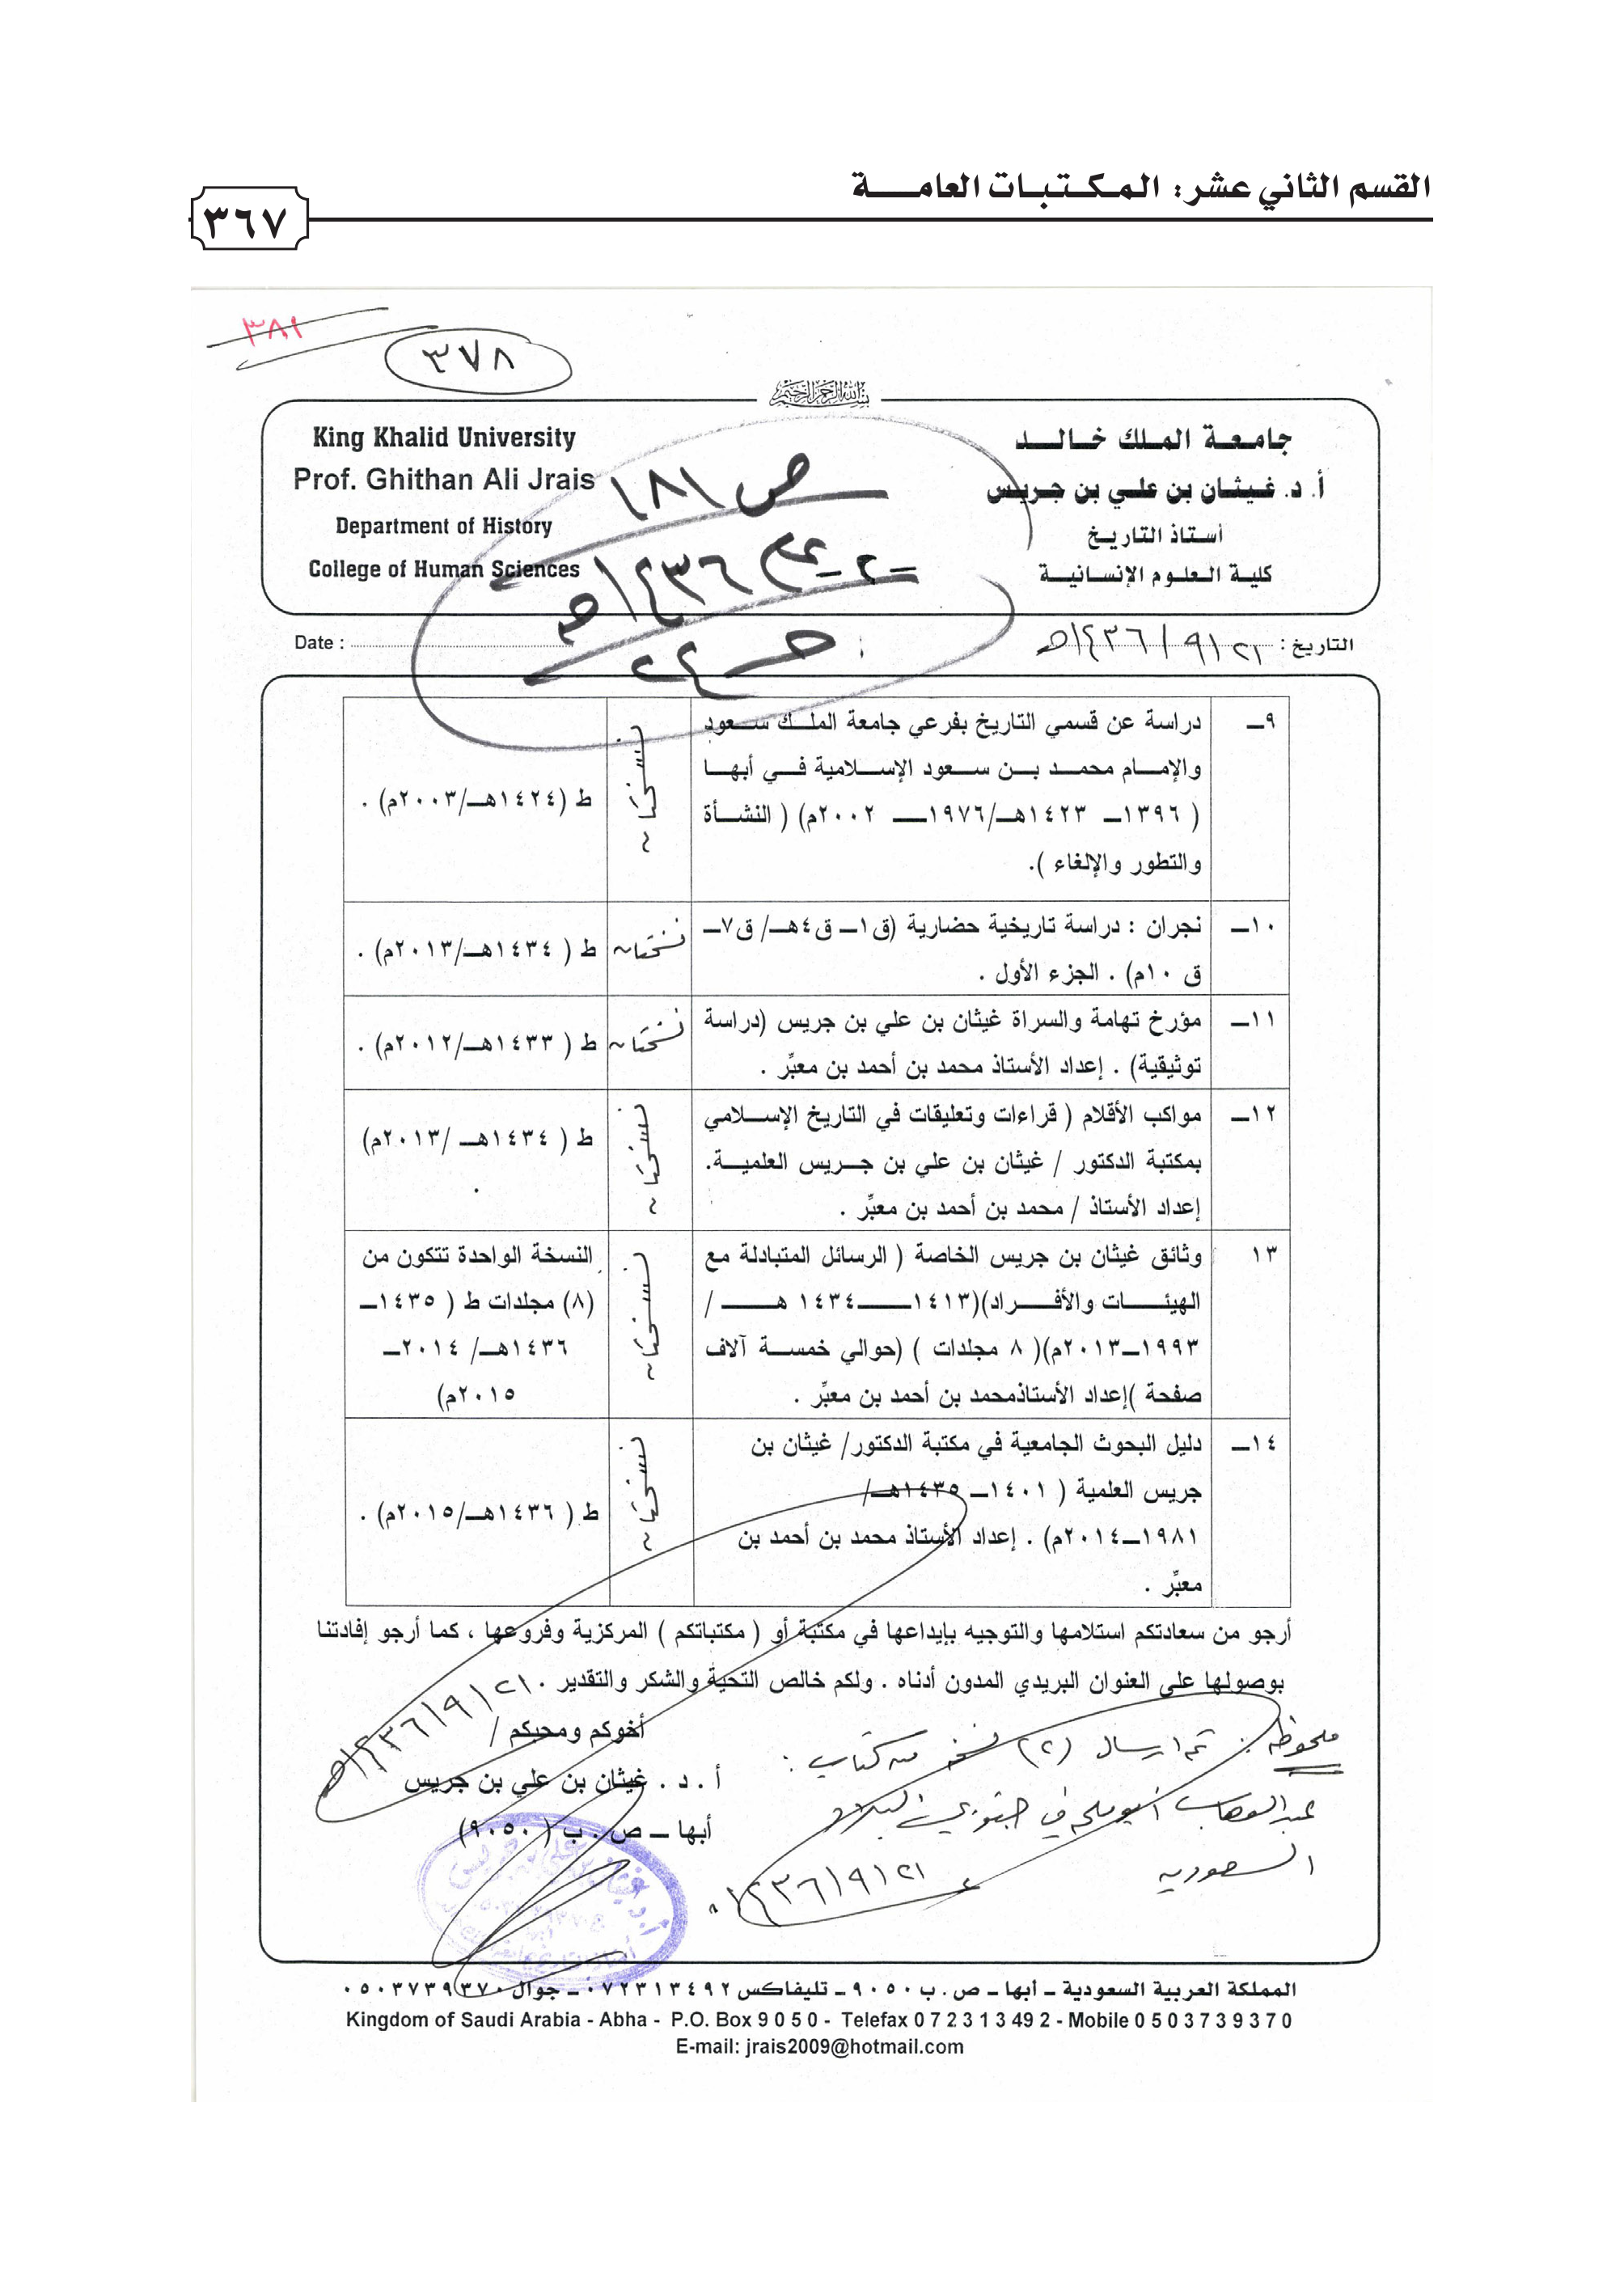 القسم الثاني عشر: المكتبات العامة
٣٦٧
٣٨١
٣٧٨
بسم الله الرحمن الرحيم
جامعة الملك خالد
أ. د. غيثان بن علي بن جريس
أستاذ التاريخ
كلية العلوم الإنسانية
King Khalid University
Prof. Ghithan Ali Jrais
Department of History
College of Human Sciences
ص ١٨١
١٤٣٦هـ
التاريخ : ٢١/٩/١٤٣٦هـ
Date :
٩ـ
دراسة عن قسمي التاريخ بفرعي جامعة الملك سعود
والإمام محمد بن سعود الإسلامية في أبها
( ١٣٩٦ـ ١٤٢٣هـ/١٩٧٦ـ ٢٠٠٢م) ( النشأة
والتطور والإلغاء ).
نسختان
ط (١٤٢٤هـ/٢٠٠٣م) .
١٠ـ
نجران : دراسة تاريخية حضارية (ق١ـ ق٤هـ/ ق٧ـ
ق ١٠م) . الجزء الأول .
نسختان
ط ( ١٤٣٤هـ/٢٠١٣م) .
١١ـ
مؤرخ تهامة والسراة غيثان بن علي بن جريس (دراسة
توثيقية) . إعداد الأستاذ محمد بن أحمد بن معبِّر .
نسختان
ط ( ١٤٣٣هـ/٢٠١٢م) .
١٢ـ
مواكب الأقلام ( قراءات وتعليقات في التاريخ الإسلامي
بمكتبة الدكتور / غيثان بن علي بن جريس العلمية.
إعداد الأستاذ / محمد بن أحمد بن معبِّر .
نسختان
ط ( ١٤٣٤هـ /٢٠١٣م)
.
١٣
وثائق غيثان بن جريس الخاصة ( الرسائل المتبادلة مع
الهيئات والأفراد)(١٤١٣ـ ١٤٣٤ هـ /
١٩٩٣ـ٢٠١٣م)( ٨ مجلدات ) (حوالي خمسة آلاف
صفحة )إعداد الأستاذمحمد بن أحمد بن معبِّر .
نسختان
النسخة الواحدة تتكون من
(٨) مجلدات ط ( ١٤٣٥ـ
١٤٣٦هـ/ ٢٠١٤ـ
٢٠١٥م)
١٤ـ
دليل البحوث الجامعية في مكتبة الدكتور/ غيثان بن
جريس العلمية ( ١٤٠١ـ ١٤٣٥هـ/
١٩٨١ـ٢٠١٤م) . إعداد الأستاذ محمد بن أحمد بن
معبِّر .
نسختان
ط ( ١٤٣٦هـ/٢٠١٥م) .
أرجو من سعادتكم استلامها والتوجيه بإيداعها في مكتبة أو ( مكتباتكم ) المركزية وفروعها ، كما أرجو إفادتنا
بوصولها على العنوان البريدي المدون أدناه . ولكم خالص التحية والشكر والتقدير .
٢١/٩/١٤٣٦هـ
أخوكم ومحبكم /
أ . د . غيثان بن علي بن جريس
أبها ـ ص . ب ( ٩٠٥٠)
ملحوظة : تم ارسال (٢) نسخ من كتاب :
عبدالوهاب أبو ملحه في جنوبي البلاد
السعودية
٢١/٩/١٤٣٦
المملكة العربية السعودية ـ أبها ـ ص . ب ٩٠٥٠ ـ تليفاكس ٠٧٢٣١٣٤٩٢ ـ جوال ٠٥٠٣٧٣٩٣٧٠
Kingdom of Saudi Arabia - Abha - P.O. Box 9 0 5 0 - Telefax 0 7 2 3 1 3 49 2 - Mobile 0 5 0 3 7 3 9 3 7 0
E-mail: jrais2009@hotmail.com